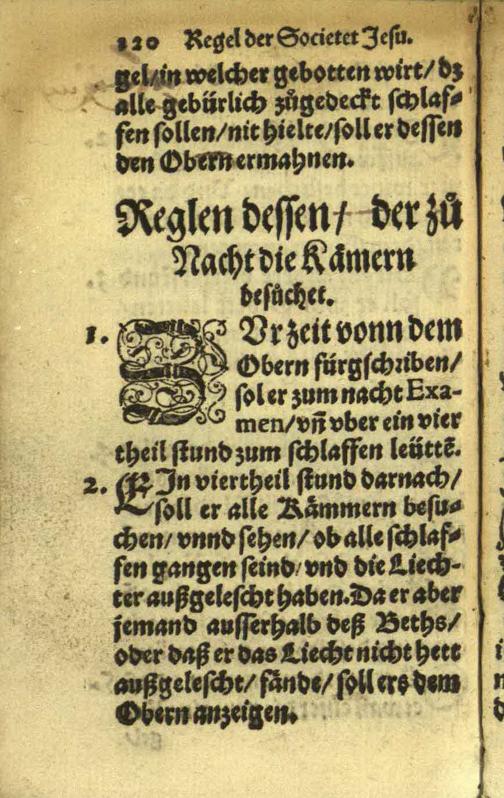 120 Regel der Societet Jesu.
gel/in welcher gebotten wirt/dz
alle gebürlich zůgedeckt schlaf-
fen sollen/nit hielte/soll er dessen
den Obern ermahnen.
Reglen dessen/ der zů
Nacht die Kämern
besůchet.
1. ZUr zeit vonn dem
Obern fürgschriben/
sol er zum nacht Exa-
men/vñ vber ein vier
theil stund zum schlaffen leüttẽ.
2. EIn viertheil stund darnach/
soll er alle Kämmern besu-
chen/ vnnd sehen/ ob alle schlaf-
fen gangen seind/ vnd die Liech-
ter außgelescht haben. Da er aber
jemand ausserhalb deß Beths/
oder daß er das Liecht nicht hett
außgelescht/ fände/ soll ers dem
Obern anzeigen.